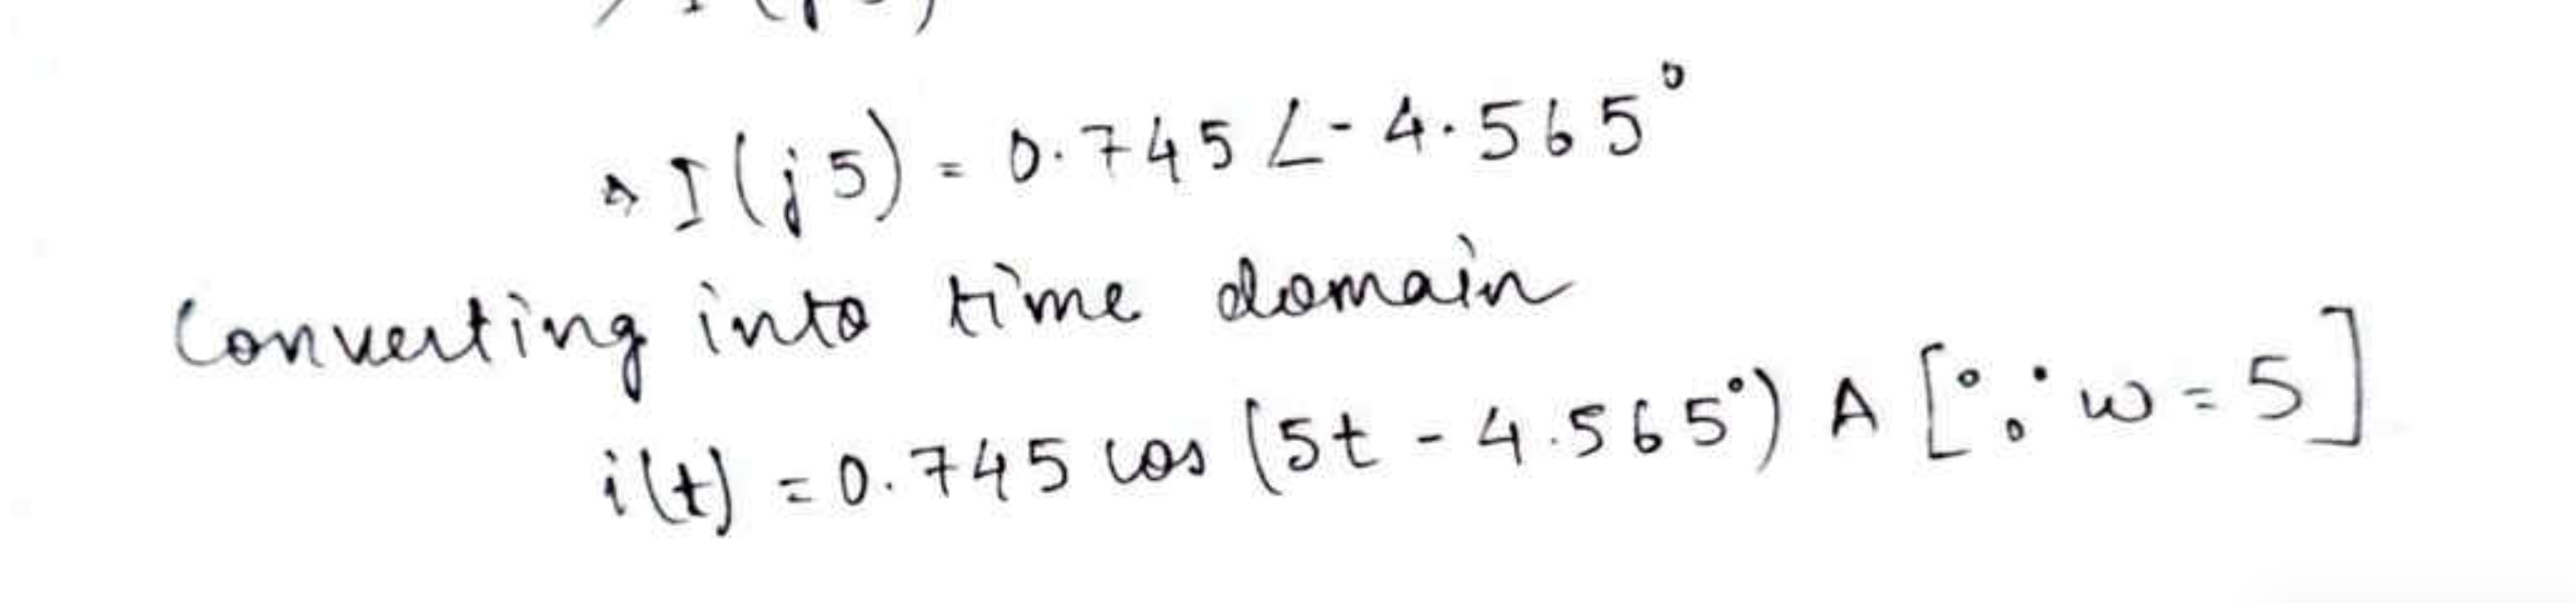 ⇒ I(j5) = 0.745 ∠-4.565°
Converting into time domain
i(t) = 0.745 cos (5t - 4.565°) A [∵ w = 5]